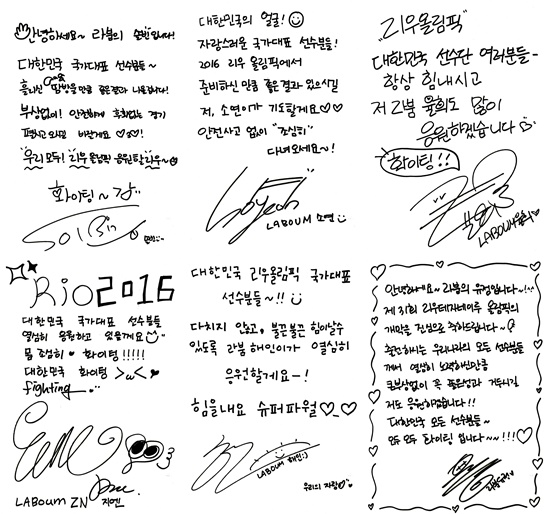 안녕하세요~ 라붐의 솔빈입니다!
대한민국 국가대표 선수분들~
흘리신 땀방울만큼 좋은결과 나올겁니다!
부상없이! 안전하게 후회없는 경기
펼치고 오시길 바랄게요♡♡!
우리 모두! 리우 올림픽 응원할리우~
화이팅~
SOlBin
대한민국의 얼굴!
자랑스러운 국가대표 선수분들!
2016 리우 올림픽에서
준비하신 만큼 좋은 결과 있으시길
저, 소연이가 기도할게요♡♡
안전사고 없이 "조심히"
다녀오세요~!
Soyeon
LABOUM 소연
"리우올림픽"
대한민국 선수단 여러분들~
항상 힘내시고
저 라붐 율희도 많이
응원하겠습니다
화이팅!!
LABOUM율희
Rio2016
대한민국 국가대표 선수분들
열심히 응원하고 있을게요
몸 조심히 화이팅!!!!!
대한민국 화이팅 >ω<
fighting
LABOUM ZN 지엔
대한민국 리우올림픽 국가대표
선수분들~!!
다치지 않고, 불끈불끈 힘이날수
있도록 라붐 해인이가 열심히
응원할게요-!
힘을내요 슈퍼파월♡_♡
LABOUM 해인:)
우리의 자랑♡
안녕하세요~ 라붐의 유정입니다~!
제 31회 리우데자네이루 올림픽의
개막을 진심으로 축하드립니다~
출전하시는 우리나라의 모든 선수분들
께서 열심히 노력하신만큼
부상없이 꼭 좋은성과 거두시길
저도 응원하겠습니다!!
대한민국 모든 선수분들~
모두 모두 화이팅 입니다~~!!!♡